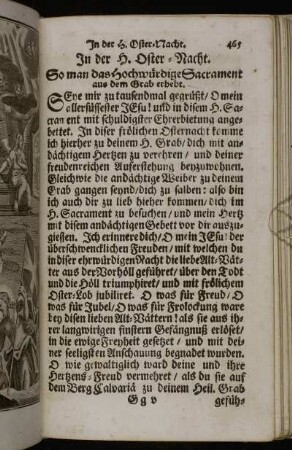 In der H. Oster-Nacht. 465
In der H. Oster-Nacht.
So man das Hochwürdige Sacrament
aus dem Grab erhebt.
SEye mir zu tausendmal gegrüßt/ O mein
allersüssester JEsu! und in disem H. Sa-
crament mit schuldigster Ehrerbietung ange-
bettet. In diser frölichen Osternacht komme
ich hierher zu deinem H. Grab/ dich mit an-
dächtigem Hertzen zu verehren/ und deiner
freudenreichen Auferstehung beyzuwohnen.
Gleichwie die andächtige Weiber zu deinem
Grab gangen seynd/ dich zu salben: also bin
ich auch dir zu lieb hieher kommen/ dich im
H. Sacrament zu besuchen/ und mein Hertz
mit disem andächtigen Gebett vor dir auszu-
giessen. Ich erinnere dich/ O mein JEsu! der
überschwencklichen Freuden/ mit welchen du
in diser ehrwürdigen Nacht die liebe Alt-Vät-
ter aus der Vorhöll geführet/ über den Todt
und die Höll triumphiret/ und mit frölichem
Oster-Lob jubiliret. O was für Freud/ O
was für Jubel/ O was für Frolockung ware
bey disen lieben Alt-Vättern! als sie aus ih-
rer langwirigen finstern Gefängnuß erlöset/
in die ewige Freyheit gesetzet/ und mit dei-
ner seeligsten Anschauung begnadet wurden.
O wie gewaltiglich ward deine und ihre
Hertzens-Freud vermehret/ als du sie auf
dem Berg Calvariä zu deinem Heil. Grab
G g v gefüh-